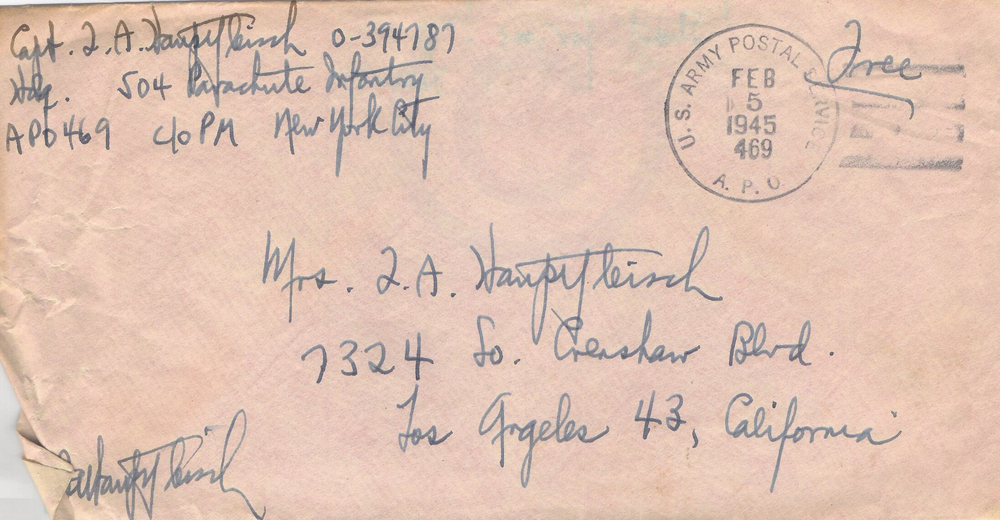 Capt. L. A. Hauptfleisch O-394787
Hdq. 504 Parachute Infantry
APO 469 c/o PM New York City
U.S. ARMY POSTAL SERVICE
FEB
5
1945
469
A.P.O.
Free
Mrs. L. A. Hauptfleisch
7324 So. Crenshaw Blvd.
Los Angeles 43, California
LAHauptfleisch